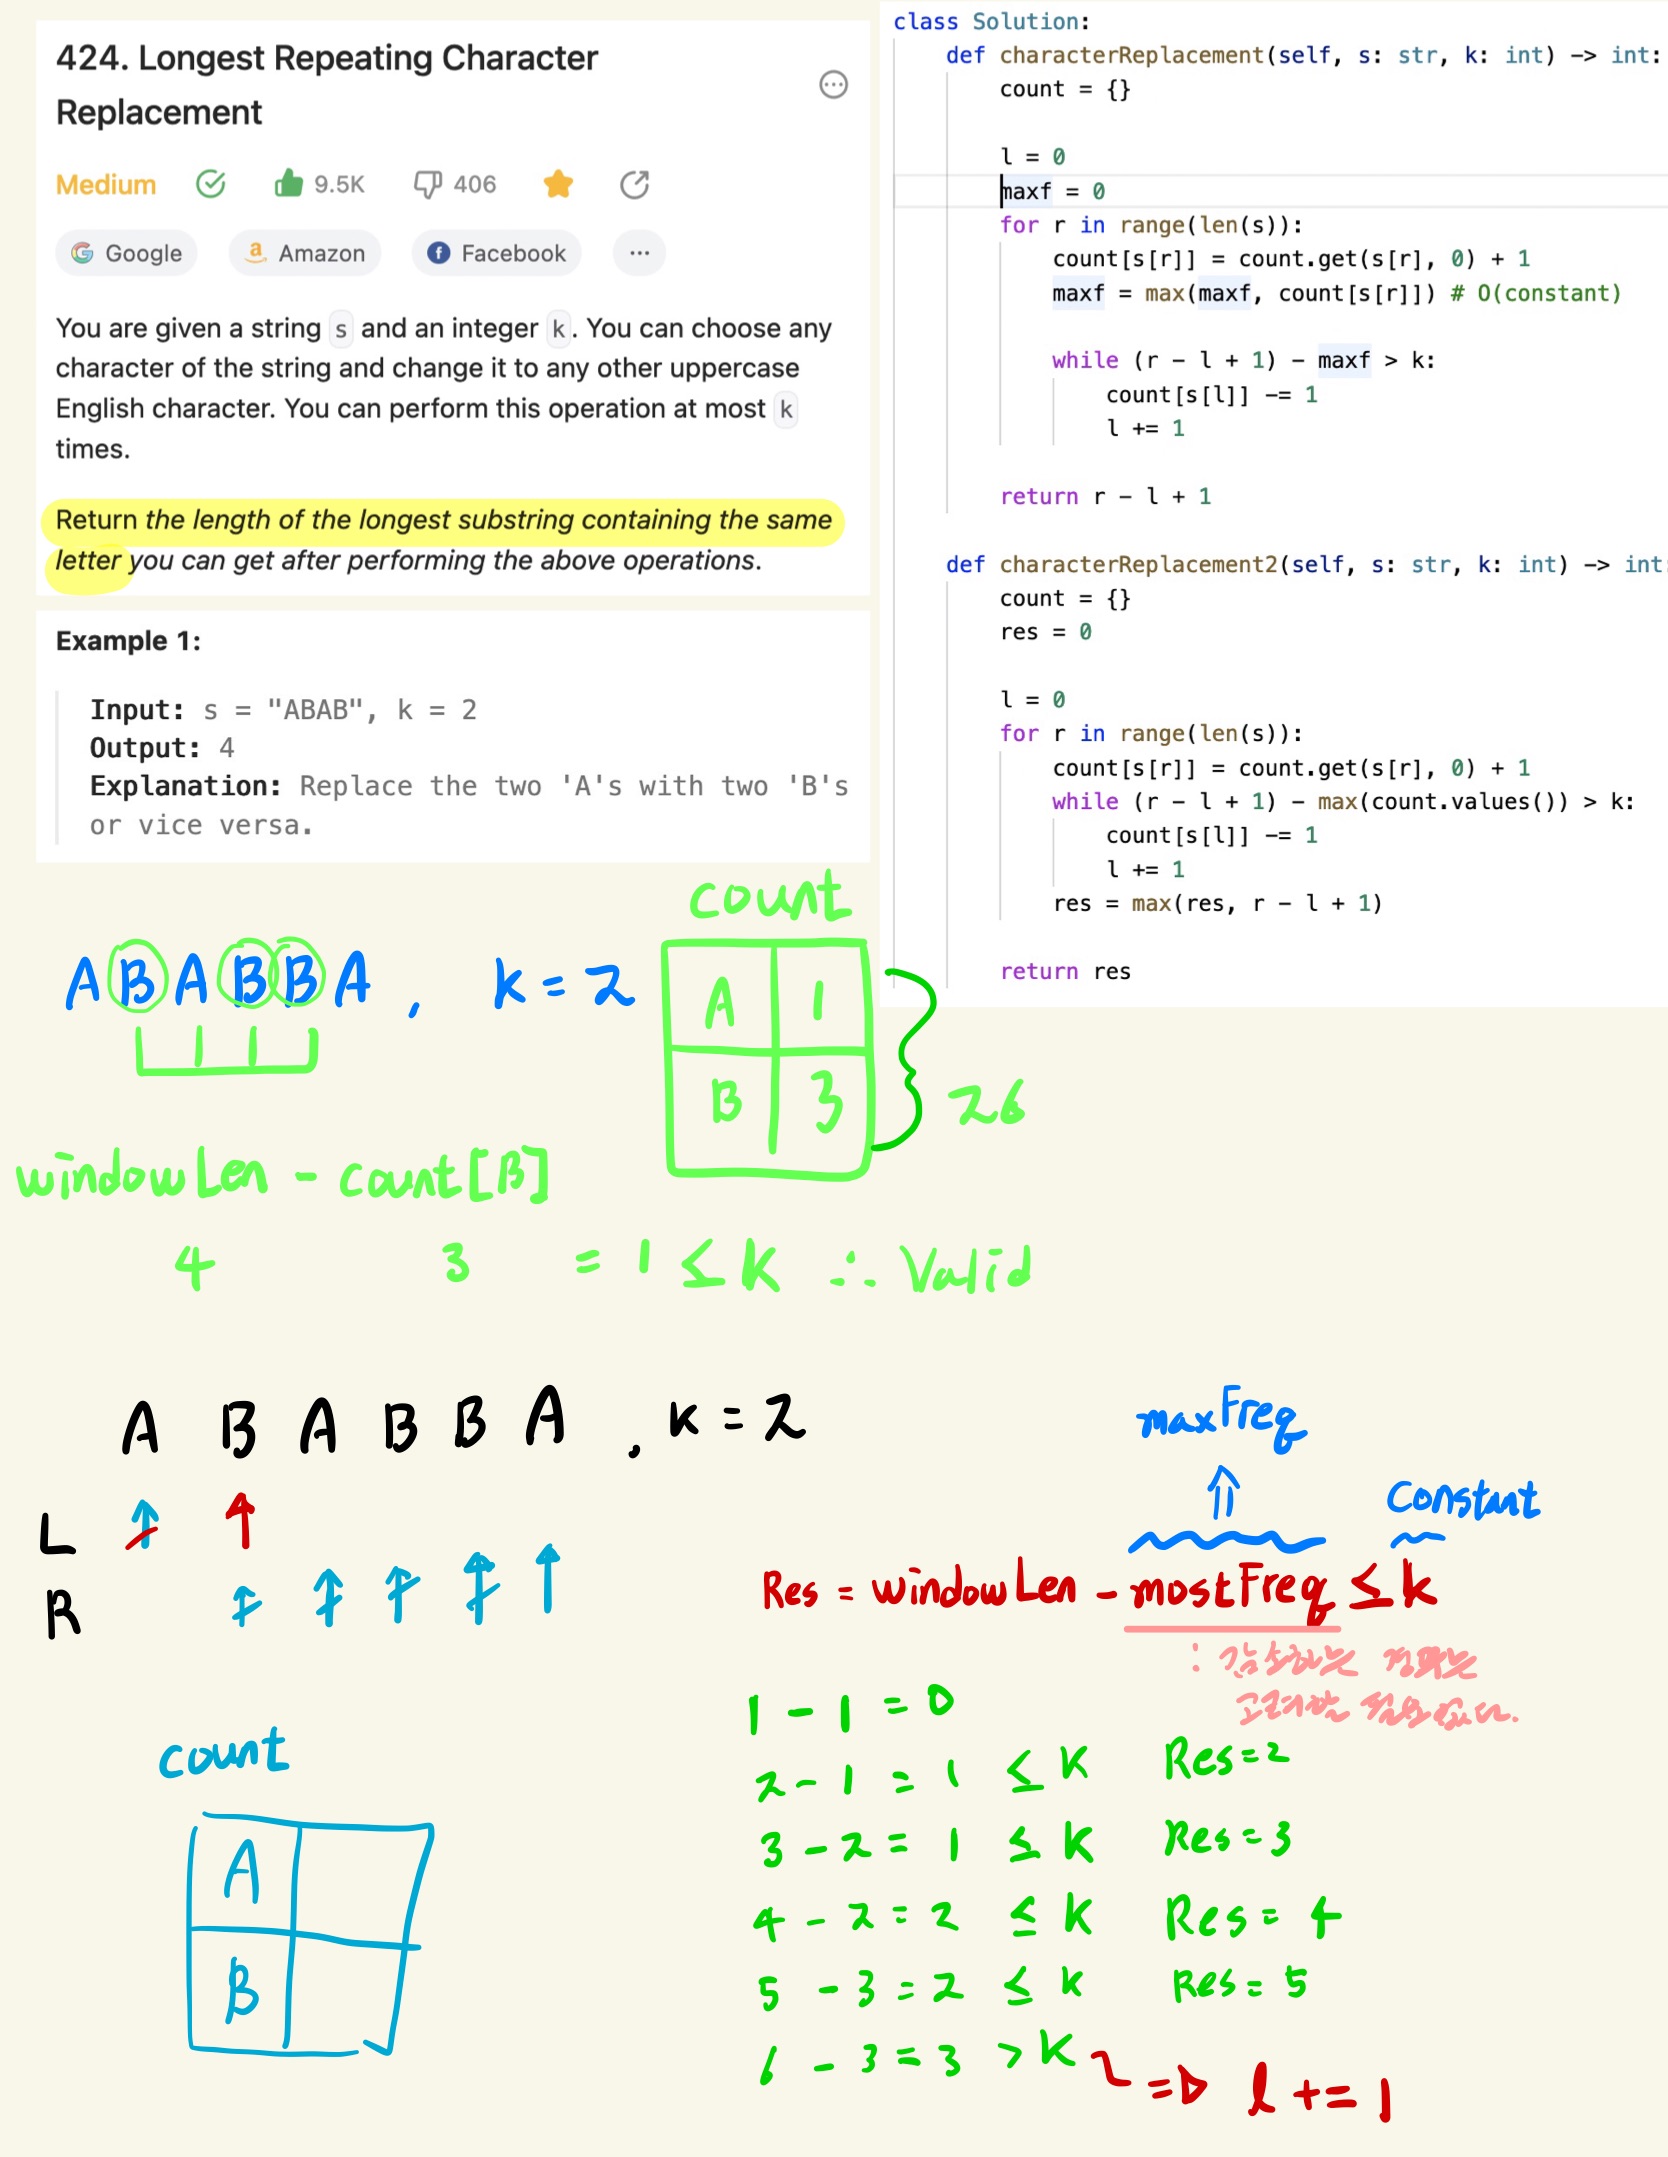 424. Longest Repeating Character
Replacement
Medium 9.5K 406
Google Amazon Facebook ...
You are given a string s and an integer k. You can choose any
character of the string and change it to any other uppercase
English character. You can perform this operation at most k
times.
Return the length of the longest substring containing the same
letter you can get after performing the above operations.
Example 1:
Input: s = "ABAB", k = 2
Output: 4
Explanation: Replace the two 'A's with two 'B's
or vice versa.
class Solution:
def characterReplacement(self, s: str, k: int) -> int:
count = {}
l = 0
maxf = 0
for r in range(len(s)):
count[s[r]] = count.get(s[r], 0) + 1
maxf = max(maxf, count[s[r]]) # O(constant)
while (r - l + 1) - maxf > k:
count[s[l]] -= 1
l += 1
return r - l + 1
def characterReplacement2(self, s: str, k: int) -> int
count = {}
res = 0
l = 0
for r in range(len(s)):
count[s[r]] = count.get(s[r], 0) + 1
while (r - l + 1) - max(count.values()) > k:
count[s[l]] -= 1
l += 1
res = max(res, r - l + 1)
return res
count
A B A B B A , k = 2
A 1
B 3
26
windowLen - count[B]
4 3 = 1 ≤ K ∴ Valid
A B A B B A , K = 2
L
R
maxFreq
Constant
Res = windowLen - mostFreq ≤ k
: 감소하는 경우는
고려할 필요 없다.
1 - 1 = 0
2 - 1 = 1 ≤ K Res=2
3 - 2 = 1 ≤ K Res=3
4 - 2 = 2 ≤ K Res= 4
5 - 3 = 2 ≤ K Res= 5
6 - 3 = 3 > K
=> l += 1
count
A
B